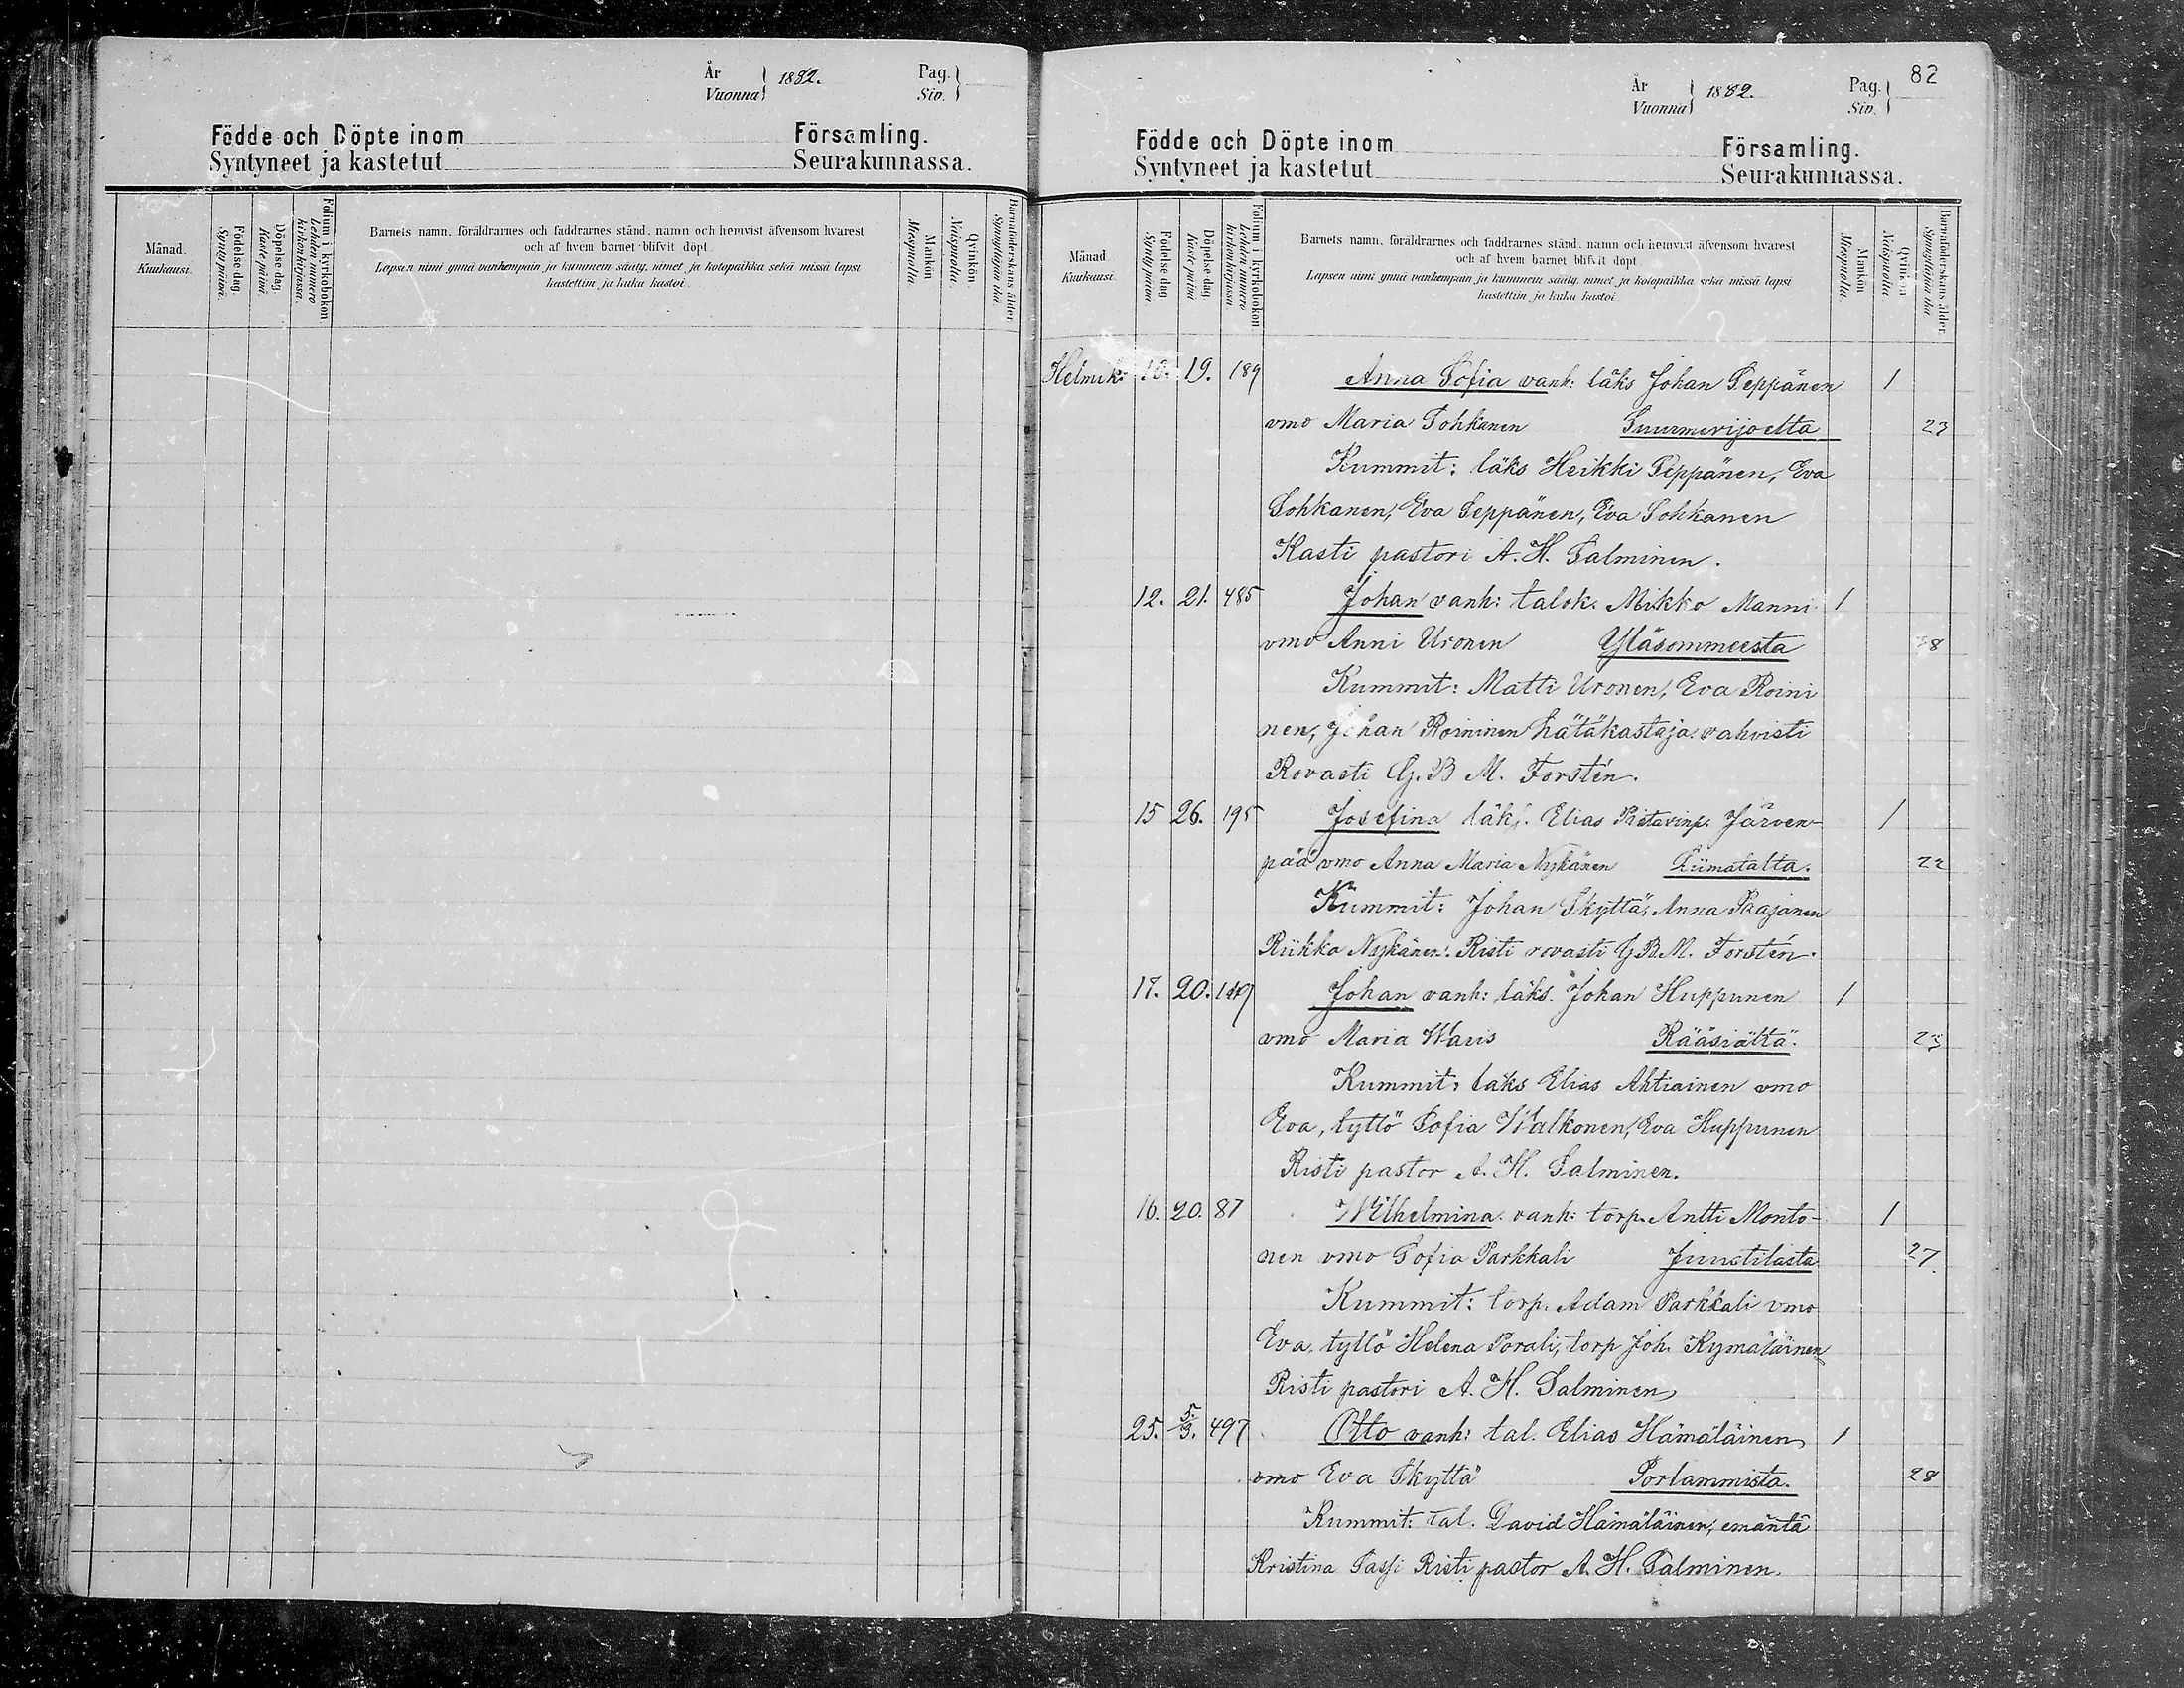 År
Vuonna
1882.
Pag.
Siv.
Födde och Döpte inom Församling.
Syntyneet ja kastetut Seurakunnassa.
Månad.
Kuukausi.
Födelse dag.
Syntypäivä.
Döpelse dag.
Kaste päivä.
Folium i kyrkoboken
Lehden numero
kirkonkirjassa.
Barnets namn, föräldrarnes och faddrarnes stånd, namn och hemvist äfvensom hvarest
och af hvem barnet blifvit döpt.
Lapsen nimi ynnä vanhempain ja kummein sääty, nimet ja kotopaikka sekä missä lapsi
kastettiin ja kuka kastoi.
Mankön
Miespuolia.
Qvinkön
Naispuolia.
Barnaföderskans ålder
Synnyttäjän ikä
82
År
Vuonna
1882.
Pag.
Siv.
Födde och Döpte inom Församling.
Syntyneet ja kastetut Seurakunnassa.
Månad
Kuukausi.
Födelse dag
Syntypäivä
Döpelse dag
Kaste päivä
Folium i kyrkoboken
Lehden numero
kirkonkirjassa
Barnets namn, föräldrarnes och faddrarnes stånd, namn och hemvist äfvensom hvarest
och af hvem barnet blifvit döpt.
Lapsen nimi ynnä vanhempain ja kummein sääty, nimet ja kotopaikka sekä missä lapsi
kastettiin ja kuka kastoi
Mankön
Miespuolia.
Qvinkön
Naispuolia
Barnaföderskans ålder
Synnyttäjän ikä
Helmik. 10. 19. 189 Anna Sofia vanh: läks Johan Seppänen 1
vmo Maria Sohkanen Suurmerijoelta 23
Kummit: läks Heikki Seppänen, Eva
Sohkanen, Eva Seppänen, Eva Sohkanen
Kasti pastori A. H. Salminen.
12. 21. 485 Johan vanh: talok. Mikko Manni 1
vmo Anni Uronen Yläsommeesta 38
Kummit: Matti Uronen, Eva Roini
nen, Johan Roininen hätäkastaja. vahvisti
Rovasti G. B M. Forstén.
15 26. 195 Josefina läks. Elias Järven- 1
pää vmo Anna Maria Nykänen Liimatalta. 22
Kummit: Johan Skyttä, Anna Paajanen
Riikka Nykänen. Risti rovasti G.B.M. Forstén.
17. 20. 149 Johan vanh: läks. Johan Huppunen 1
vmo Maria Waris Rääsiältä. 23
Kummit: läks Elias Ahtiainen vmo
Eva, tyttö Sofia Walkonen, Eva Huppunen
Risti pastor A. H. Salminen.
16. 20. 87 Wilhelmina. vanh: torp. Antti Monto- 1
nen vmo Sofia Parkkali Juustilasta 27.
Kummit: torp. Adam Parkkali vmo
Eva, tyttö Helena Porali, torp Joh. Kymäläinen
Risti pastori A. H. Salminen
25. 5/3. 497 Otto vanh: tal. Elias Hämäläinen 1
vmo Eva Skyttä Porlammista. 28
Kummit: tal. David Hämäläinen, emäntä
Kristina Risti pastor A. H. Salminen.